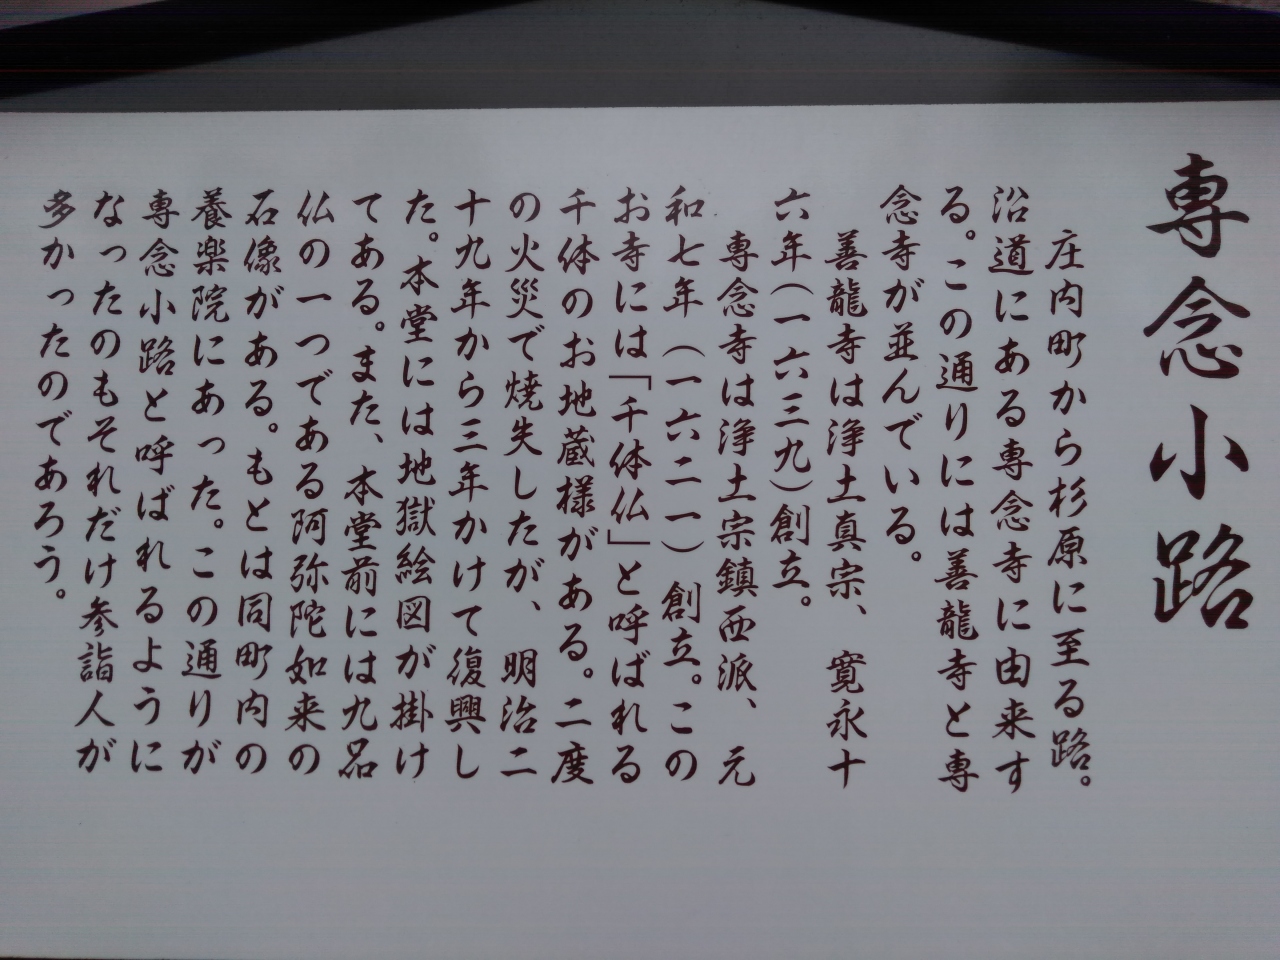 専念小路
庄内町から杉原に至る路。
沿道にある専念寺に由来す
る。この通りには善龍寺と専
念寺が並んでいる。
善龍寺は浄土真宗、寛永十
六年(一六三九)創立。
専念寺は浄土宗鎮西派、元
和七年(一六二一)創立。この
お寺には「千体仏」と呼ばれる
千体のお地蔵様がある。二度
の火災で焼失したが、明治二
十九年から三年かけて復興し
た。本堂には地獄絵図が掛け
てある。また、本堂前には九品
仏の一つである阿弥陀如来の
石像がある。もとは同町内の
養楽院にあった。この通りが
専念小路と呼ばれるように
なったのもそれだけ参詣人が
多かったのであろう。